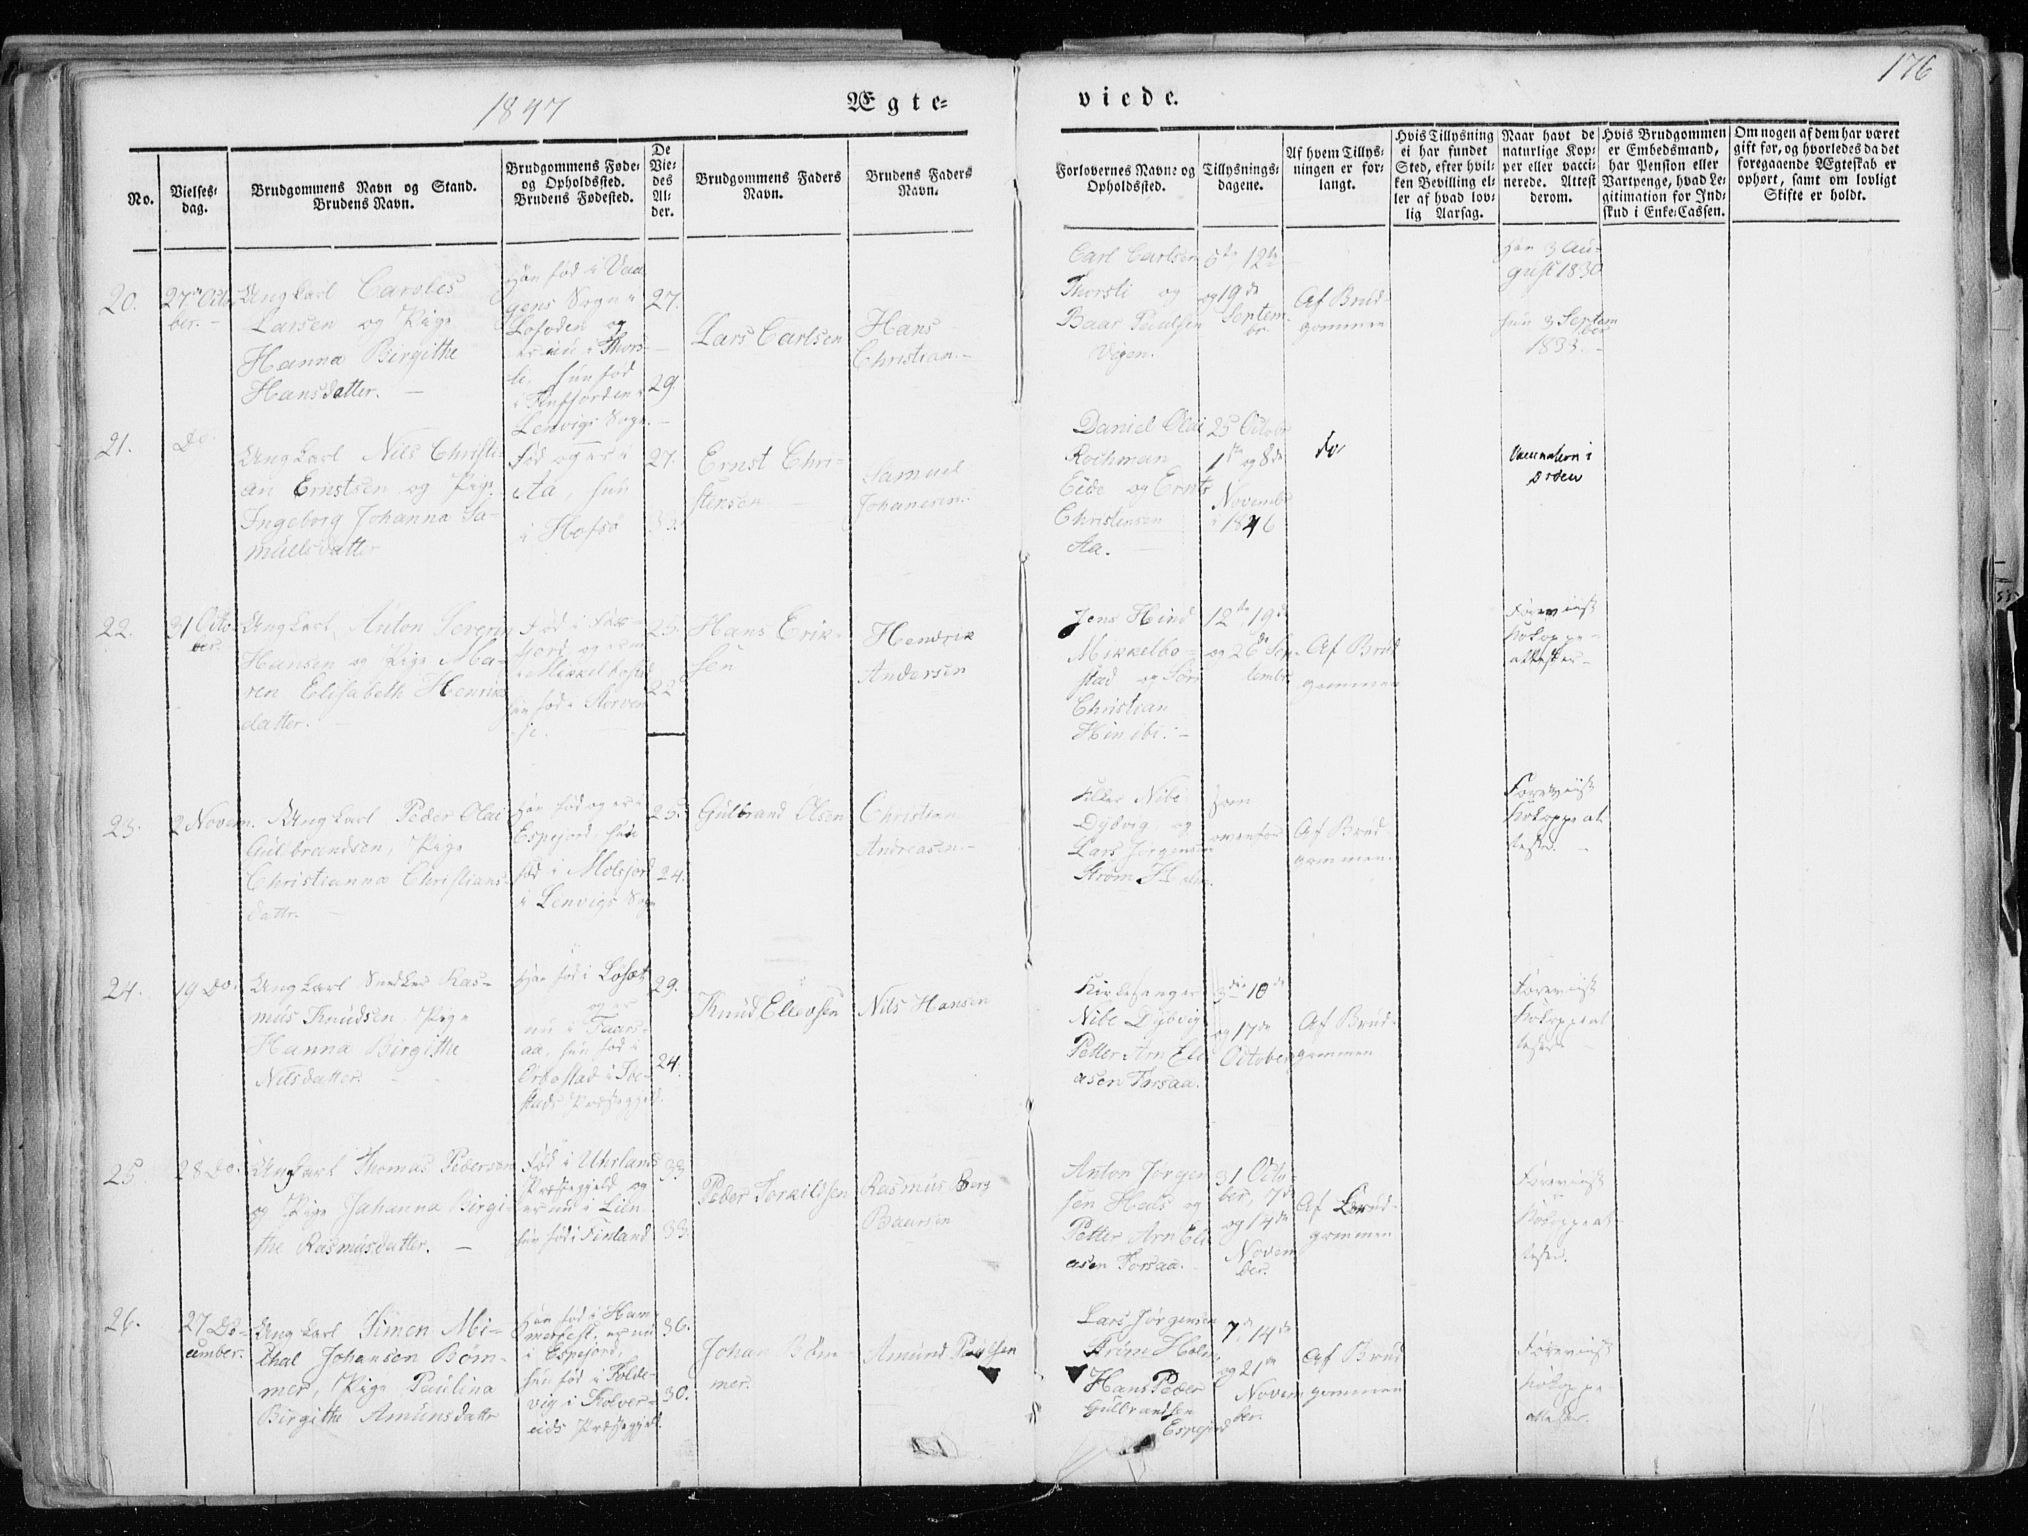 176
1847
Ægte-
viede.
No.
Vielses-
dag.
Brudgommens Navn og Stand.
Brudens Navn.
Brudgommens Føde-
og Opholdssted.
Brudens Fødested.
De
Vie-
des
Al-
der.
Brudgommens Faders
Navn.
Brudens Faders
Navn.
Forlovernes Navne og
Opholdssted.
Tillysnings-
dagene.
Af hvem Tillys-
ningen er for-
langt.
Hvis Tillysning
ei har fundet
Sted, efter hvil-
ken Bevilling el-
ler af hvad lov-
lig Aarsag.
Naar havt de
naturlige Kop-
per eller vacci-
nerede. Attest
derom.
Hvis Brudgommen
er Embedsmand,
har Pension eller
Vartpenge, hvad Le-
gitimation for Ind-
skud i Enke-Cassen.
Om nogen af dem har været
gift før, og hvorledes da det
foregaaende Ægteskab er
ophørt, samt om lovligt
Skifte er holdt.
20.
27de Octo-
ber.
Ungkarl Caroles
Larsen og Pige
Hanna Birgithe
Hansdatter.
Han fød i Vaa
gens Sogn i
Lofoden og
er nu i Thors-
ti. hun fød
i Finfjorden i
Lenvigs Sogn.
27.
29.
Lars Carlsen
Hans
Christian.
Carl Carlsen
Thorsti og
Baar Paulsen
Vigen.
5te 12te
og 19de
Septem-
br.
Af Brud-
gommen
Han 3 Au-
gust 1830
hun 3 Septem
ber
1833.
21.
Do.
Ungkarl Nils Christi-
an Ernstsen og Pige
Ingeborg Johanna Sa-
muelsdatter
Fød og er i
Aa, hun
i Hofsø
27.
Ernst Chri-
stensen
Samuel
Johanesen.
Daniel Olai
Rochman
Eide og Ernts
Christensen
Aa.
25 Octobr
1ste og 8de
Novembr
i 1846
do
Vaccinatern i
Orden
22.
31 Octo-
ber.
Ungkarl Anton Severin
Hansen og Pige Ma-
ren Elisabeth Henriks
datter.
Fød i Fax-
fjord og er nu
i Mikkelbostad
hun fød i Storven
je.
25.
22
Hans Erik-
sen
Hendrik
Andersen
Jens Hind
Mikkelbo-
stad og Sørn
Christian
Hindbi.
12te 19de
og 26de Sep-
tembr
Af Brud
gommen
Foreviist
Kokoppe-
attester
23.
2 Novem.
Ungkarl Peder Olai
Gulbrandsen, Pige
Christianna Christians-
dattr.
Han fød og er i
Espejord hun
fød i Molsjord
i Lenvigs Sogn
25.
24.
Gulbrand Olsen
Christian
Andreasen.
Nibe
Dybvig og
Lars Jørgensen
Strøm Holm.
som
ovenfor
Af Brud-
gommen.
Foreviist
Kokoppeat
tester.
24.
19 Do.
Ungkarl Snedker Ras-
mus Knudsen Pige
Hanna Birgithe
Nilsdatter.
Han fød i Løset
og er
nu i Faars-
aa, hun fød i
Orbostad i Ibe-
stads Præstegjeld.
29.
24.
Knud Ellevsen
Nils Hansen
Kirkesanger
Nibe Dybvig
Petter Arn Eli
asen Forsaa.
3die 10de
og 17de
October
Af Brud-
gommen
Foreviist
Kokoppeat
tester
25.
28 Do.
Ungkarl Thomas Pedersen
og Pige Johanna Birgi-
the Rasmusdatter.
Fød i Uhrlands
Præstegjeld og
er nu i Lien
hun fød i Finland
33.
33.
Peder Torkildsen
Rasmus Berg
Baarsen
Anton Jørgen
sen Hals og
Petter Arn Eli
asen Forsaa.
31 Octo-
ber, 7de
og 14de
Novem
ber.
Af Brud-
gommen
Foreviist
Kokoppeat
tester.
26.
27 De-
cember.
Ungkarl Simon Mi-
chal Johansen Bøm-
mer, Pige Paulina
Birgithe Amundsdattr
Han fød i Ham-
merfest, er nu
i Espejord,
hun fød i Folde-
vig i Kolver-
eids Præstegjeld.
36.
30.
Johan Bøm-
mer.
Amund Paulsen
Lars Jørgensen
Strøm Holm
Hans Peder
Gulbrandsen
Espejord
7de 14de
og 21de
Novem
ber.
Af Brud
gommen
Foreviist
Kokoppe
attester.